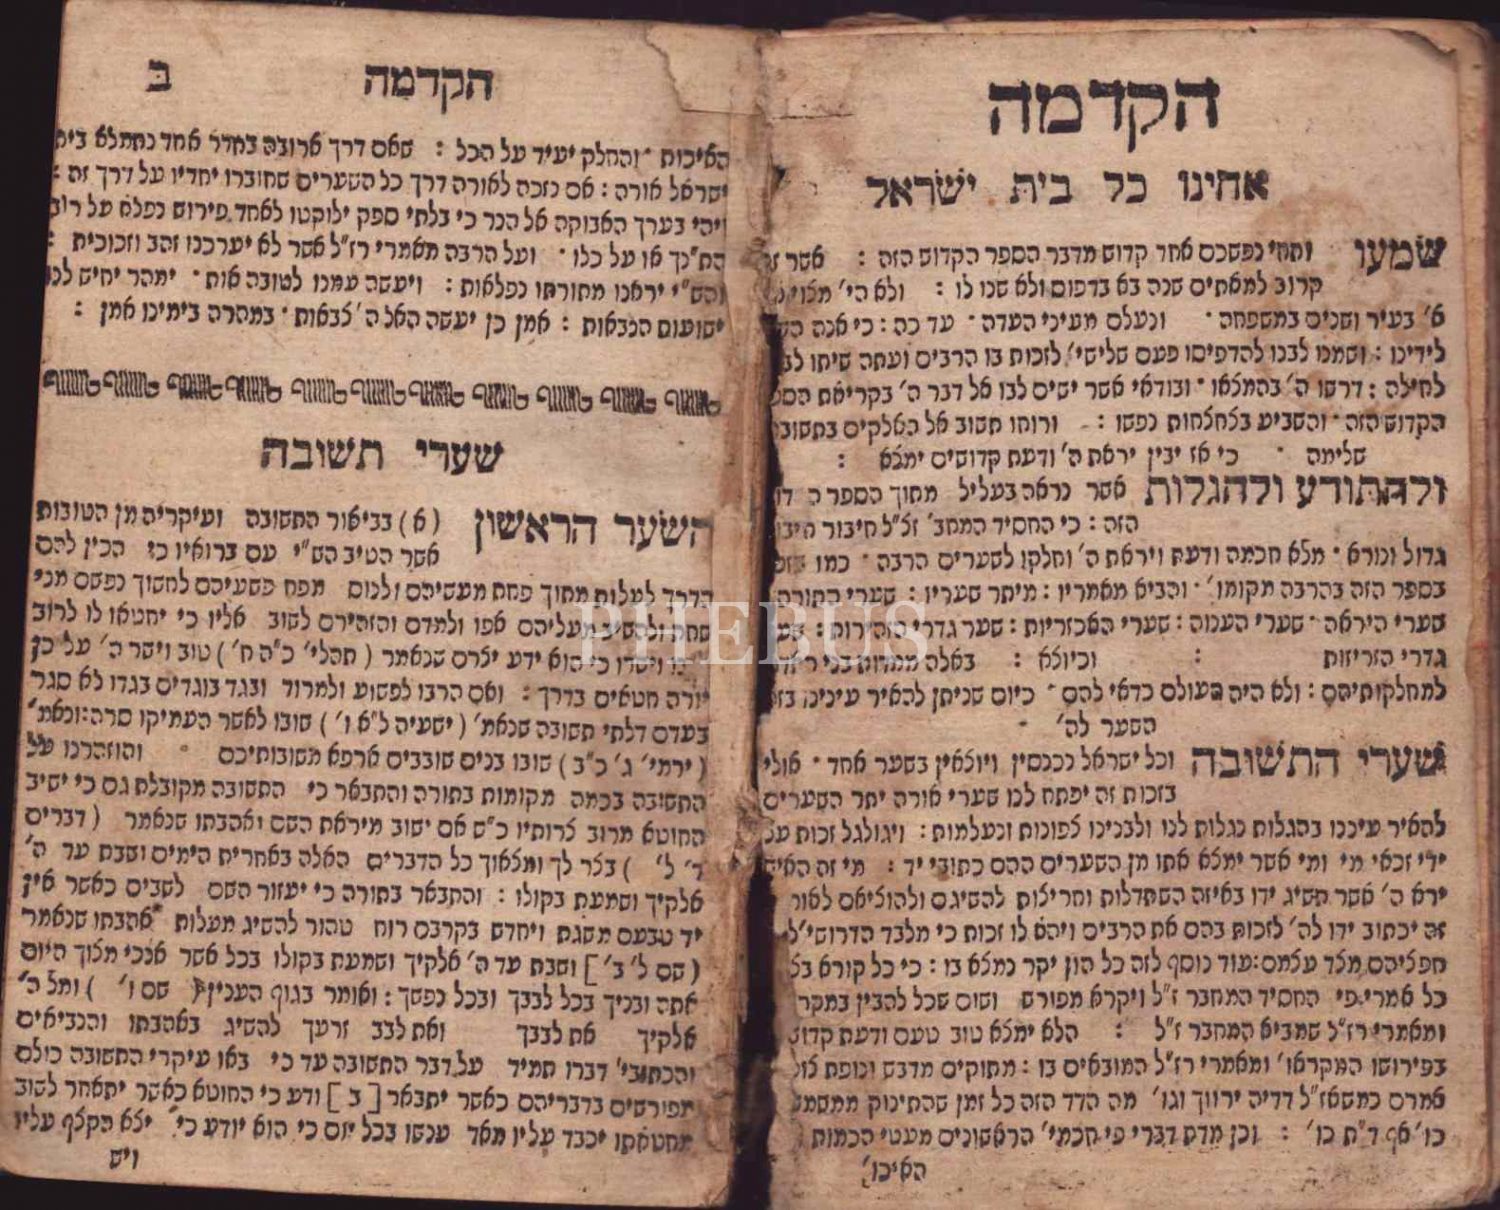 הקדמה
אחינו כל בית ישראל
שמעו ותחי נפשכם אחד קדוש מדבר הספר הקדוש הזה : אשר זה
קרוב למאתים שנה בא בדפוס ולא שנו לו : ולא הי' מצוי
א' בעיר ושנים במשפחה · ונעלם מעיני העדה · עד כה : כי אנה
לידינו : ושמנו לבנו להדפיסו פעם שלישי' לזכות בו הרבים ועתה שיתו
לחילה : דרשו ה' בהמצאו · ובודאי אשר ישים לבו אל דבר ה' בקריאת
הקדוש הזה · והשביע בצחצחות נפשו : ורוחו תשוב אל האלקים בתשובה
שלימה · כי אז יבין יראת ה' ודעת קדושים ימצא :
ולהתודע ולהגלות אשר נראה בעליל מתוך הספר
הזה : כי החסיד המחב' זצ"ל חיבור
גדול ונורא · מלא חכמה ודעת ויראת ה' וחלקו לשערים הרבה · כמו
בספר הזה בהרבה מקומו' · והביא מאמריו : מיתר שעריו : שערי התורה
שערי היראה · שערי הענוה : שערי האכזריות : שער גדרי הזהירות :
גדרי הזריזות : וכיוצא : באלה
למחלקותיהם : ולא היה העולם כדאי להם · כיום שניתן להאיר עינינו
השער לה' ·
שערי התשובה וכל ישראל נכנסין ויוצאין בשער אחד · אולי
בזכות זה יפתח לנו שערי אורה יתר השערים
להאיר עינינו בהגלות נגלות לנו ולבנינו צפונות ונעלמות : ויגולגל זכות
ידי זכאי מי ומי אשר ימצא אתו מן השערים ההם כתובי יד : מי זה האיש
ירא ה' אשר תשיג ידו באיזה השתדלות וחריצות להשיגם ולהוציאם לאור
זה יכתוב ידו לה' לזכות בהם את הרבים ויהא לו זכות כי מלבד הדרושי'
חפציהם מצד עצמם : עוד נוסף לזה כל הון יקר נמצא בו : כי כל קורא
כל אמרי פי החסיד המחבר ז"ל ויקרא מפורש ושום שכל להבין במקר
ומאמרי רז"ל שמביא המחבר ז"ל : הלא ימצא טוב טעם ודעת קדוש
בפירושו המקראו' ומאמרי רז"ל המובאים בו : מתוקים מדבש ונופת
אמרם כמשאז"ל דדיה ירווך וגו' מה הדד הזה כל זמן שהתינוק ממשמש
כו' אף ד"ת כו' : וכן מדת דברי פי חכמי' הראשונים מעטי הכמות
האיכו'
הקדמה ב
האיכות · והחלק יעיד על הכל : שאם דרך ארובה בחדר אחד נתמלא בית
ישראל אורה : אם נזכה לאורה דרך כל השערים שחוברו יחדיו על דרך זה :
ויהי בערך האבוקה אל הנר כי בלתי ספק ילוקטו לאחד פירוש נפלא על רוב
התנ"ך או על כלו · ועל הרבה מאמרי רז"ל אשר לא יערכנו זהב וזכוכית :
והש"י יראנו מתורתו נפלאות : ויעשה עמנו לטובה אות · ימהר יחיש לנו
ישועות הנבאות : אמן כן יעשה האל ה' צבאות · במהרה בימינו אמן :
שערי תשובה
השער הראשון (א) בביאור התשובה ועיקריה מן הטובות
אשר הטיב הש"י עם ברואיו כי הכין להם
הדרך לעלות מתוך פחת מעשיהם ולנוס מפח פשעיהם לחשוך נפשם מני
שחת ולהשיב מעליהם אפו ולמדם והזהירם לשוב אליו כי יחטאו לו לרוב
ויסדו כי הוא ידע יצרם שנאמר (תהלי' כ"ה ח') טוב וישר ה' על כן
יורה חטאים בדרך : ואם הרבו לפשוע ולמרוד ובגד בוגדים בגדו לא סגר
בעדם דלתי תשובה שנאמ' (ישעיה ל"א ו') שובו לאשר העמיקו סרה : ונאמ'
(ירמי' ג' כ"ב) שובו בנים שובבים ארפא משובותיכם והוזהרנו על
התשובה בכמה מקומות בתורה והתבאר כי התשובה מקובלת גם כי ישיב
החוטא מרוב צרותיו כ"ש אם ישוב מיראת השם ואהבתו שנאמר (דברים
ד' ל') בצר לך ומצאוך כל הדברים האלה באחרית הימים ושבת עד ה'
אלקיך ושמעת בקולו : והתבאר בתורה כי יעזור השם לשבים כאשר אין
יד טבעם משגת ויחדש בקרבם רוח טהור להשיג מעלות אהבתו שנאמר
(שם ל' ב'] ושבת עד ה' אלקיך ושמעת בקולו בכל אשר אנכי מצוך היום
אתה ובניך בכל לבבך ובכל נפשך : ואומר בגוף הענין (שם ו') ומל ה'
אלקיך את לבבך ואת לבב זרעך להשיג באהבתו והנביאים
והכתובי' דברו תמיד על דבר התשובה עד כי באו עיקרי התשובה כולם
מפורשים בדבריהם כאשר יתבאר [ב] ודע כי החוטא כאשר יתאחר לשוב
מחטאתו יכבד עליו מאד ענשו בכל יום כי הוא יודע כי' יצא הקצף עליו
ויש
PHEBUS